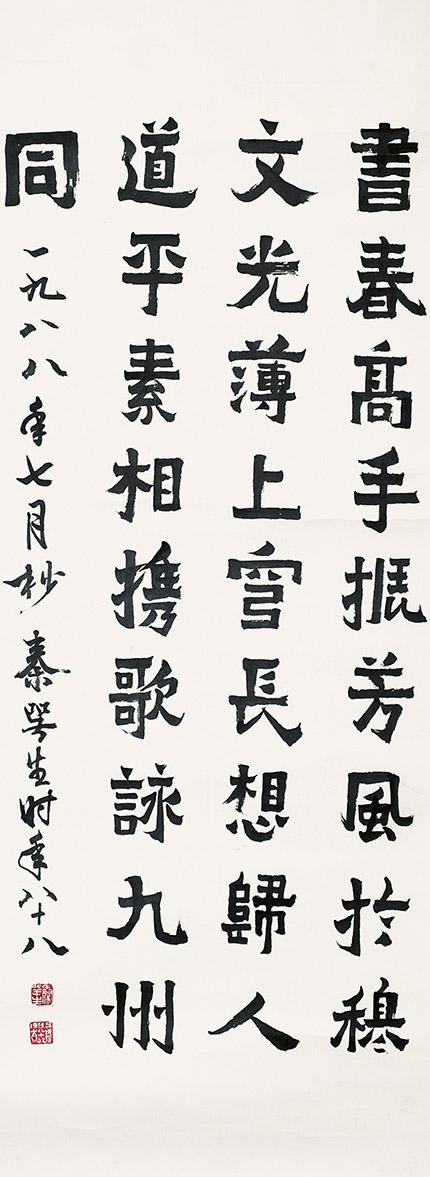 書春髙手振芳風於穆
文光薄上穹長想歸人
道平素相携歌詠九州
同
一九八八年七月杪 秦咢生时年八十八